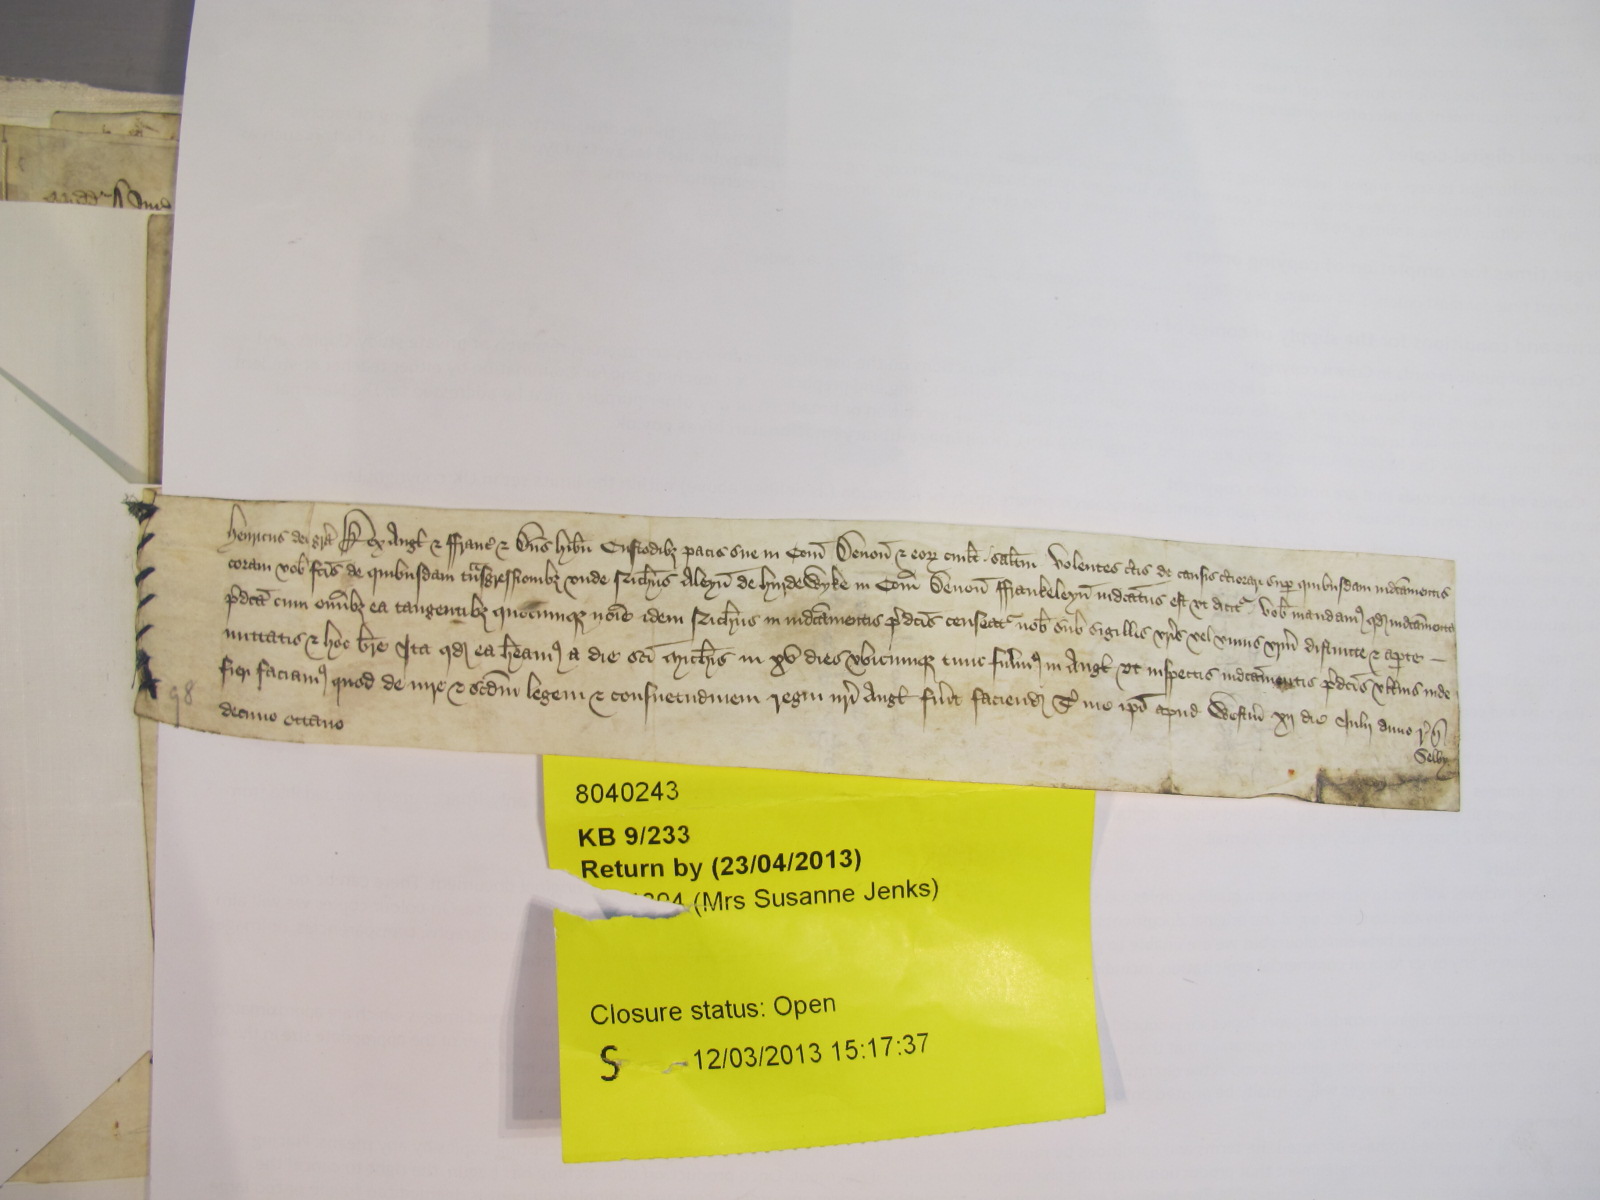 Henricus dei gra Rex Angl & Franc & Dns hibn Custodibz pacis sue in Com Devon & eorz cuilt saltm Volentes ctis de causis ctiorari sup quibusdam indcamentis
coram vob fcis de quibusdam tnsgressionibz unde Ricus Aleyn de hyndewyke in Com Devon Frankeleyn indcatus est ut dicit vob mandamus qd indcamenta
pdca cum omibz ea tangentibz quocumqz noie idem Ricus in indcamentis pdcis censeat nob sub sigillis vris vel unius vrm distincte & apte
mittatis & hoc bre Ita qd ea heamus a die sci Michis in xv dies ubicumqz tunc fuimus in Angl ut inspectis indcamentis pdcis ultius inde
fieri faciamus quod de iure & scdm legem & consuetudinem regni nri Angl fuit faciend T me ipo apud Westm xij die Julii anno r n
decimo octavo
Selby
98
8040243
KB 9/233
Return by (23/04/2013)
(Mrs Susanne Jenks)
Closure status: Open
S 12/03/2013 15:17:37